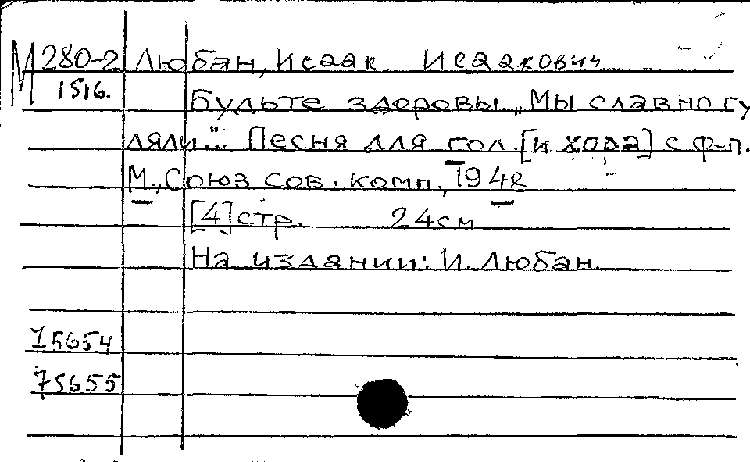 М 280-2 Любан, Исаак Исаакович
1516.
Будьте здоровы „Мы славно гу
ляли“... Песня для гол. [и хора] с ф-п.
М., Союз сов. комп., 1948
[4] стр. 24 см
На издании: И. Любан.
15654
75655